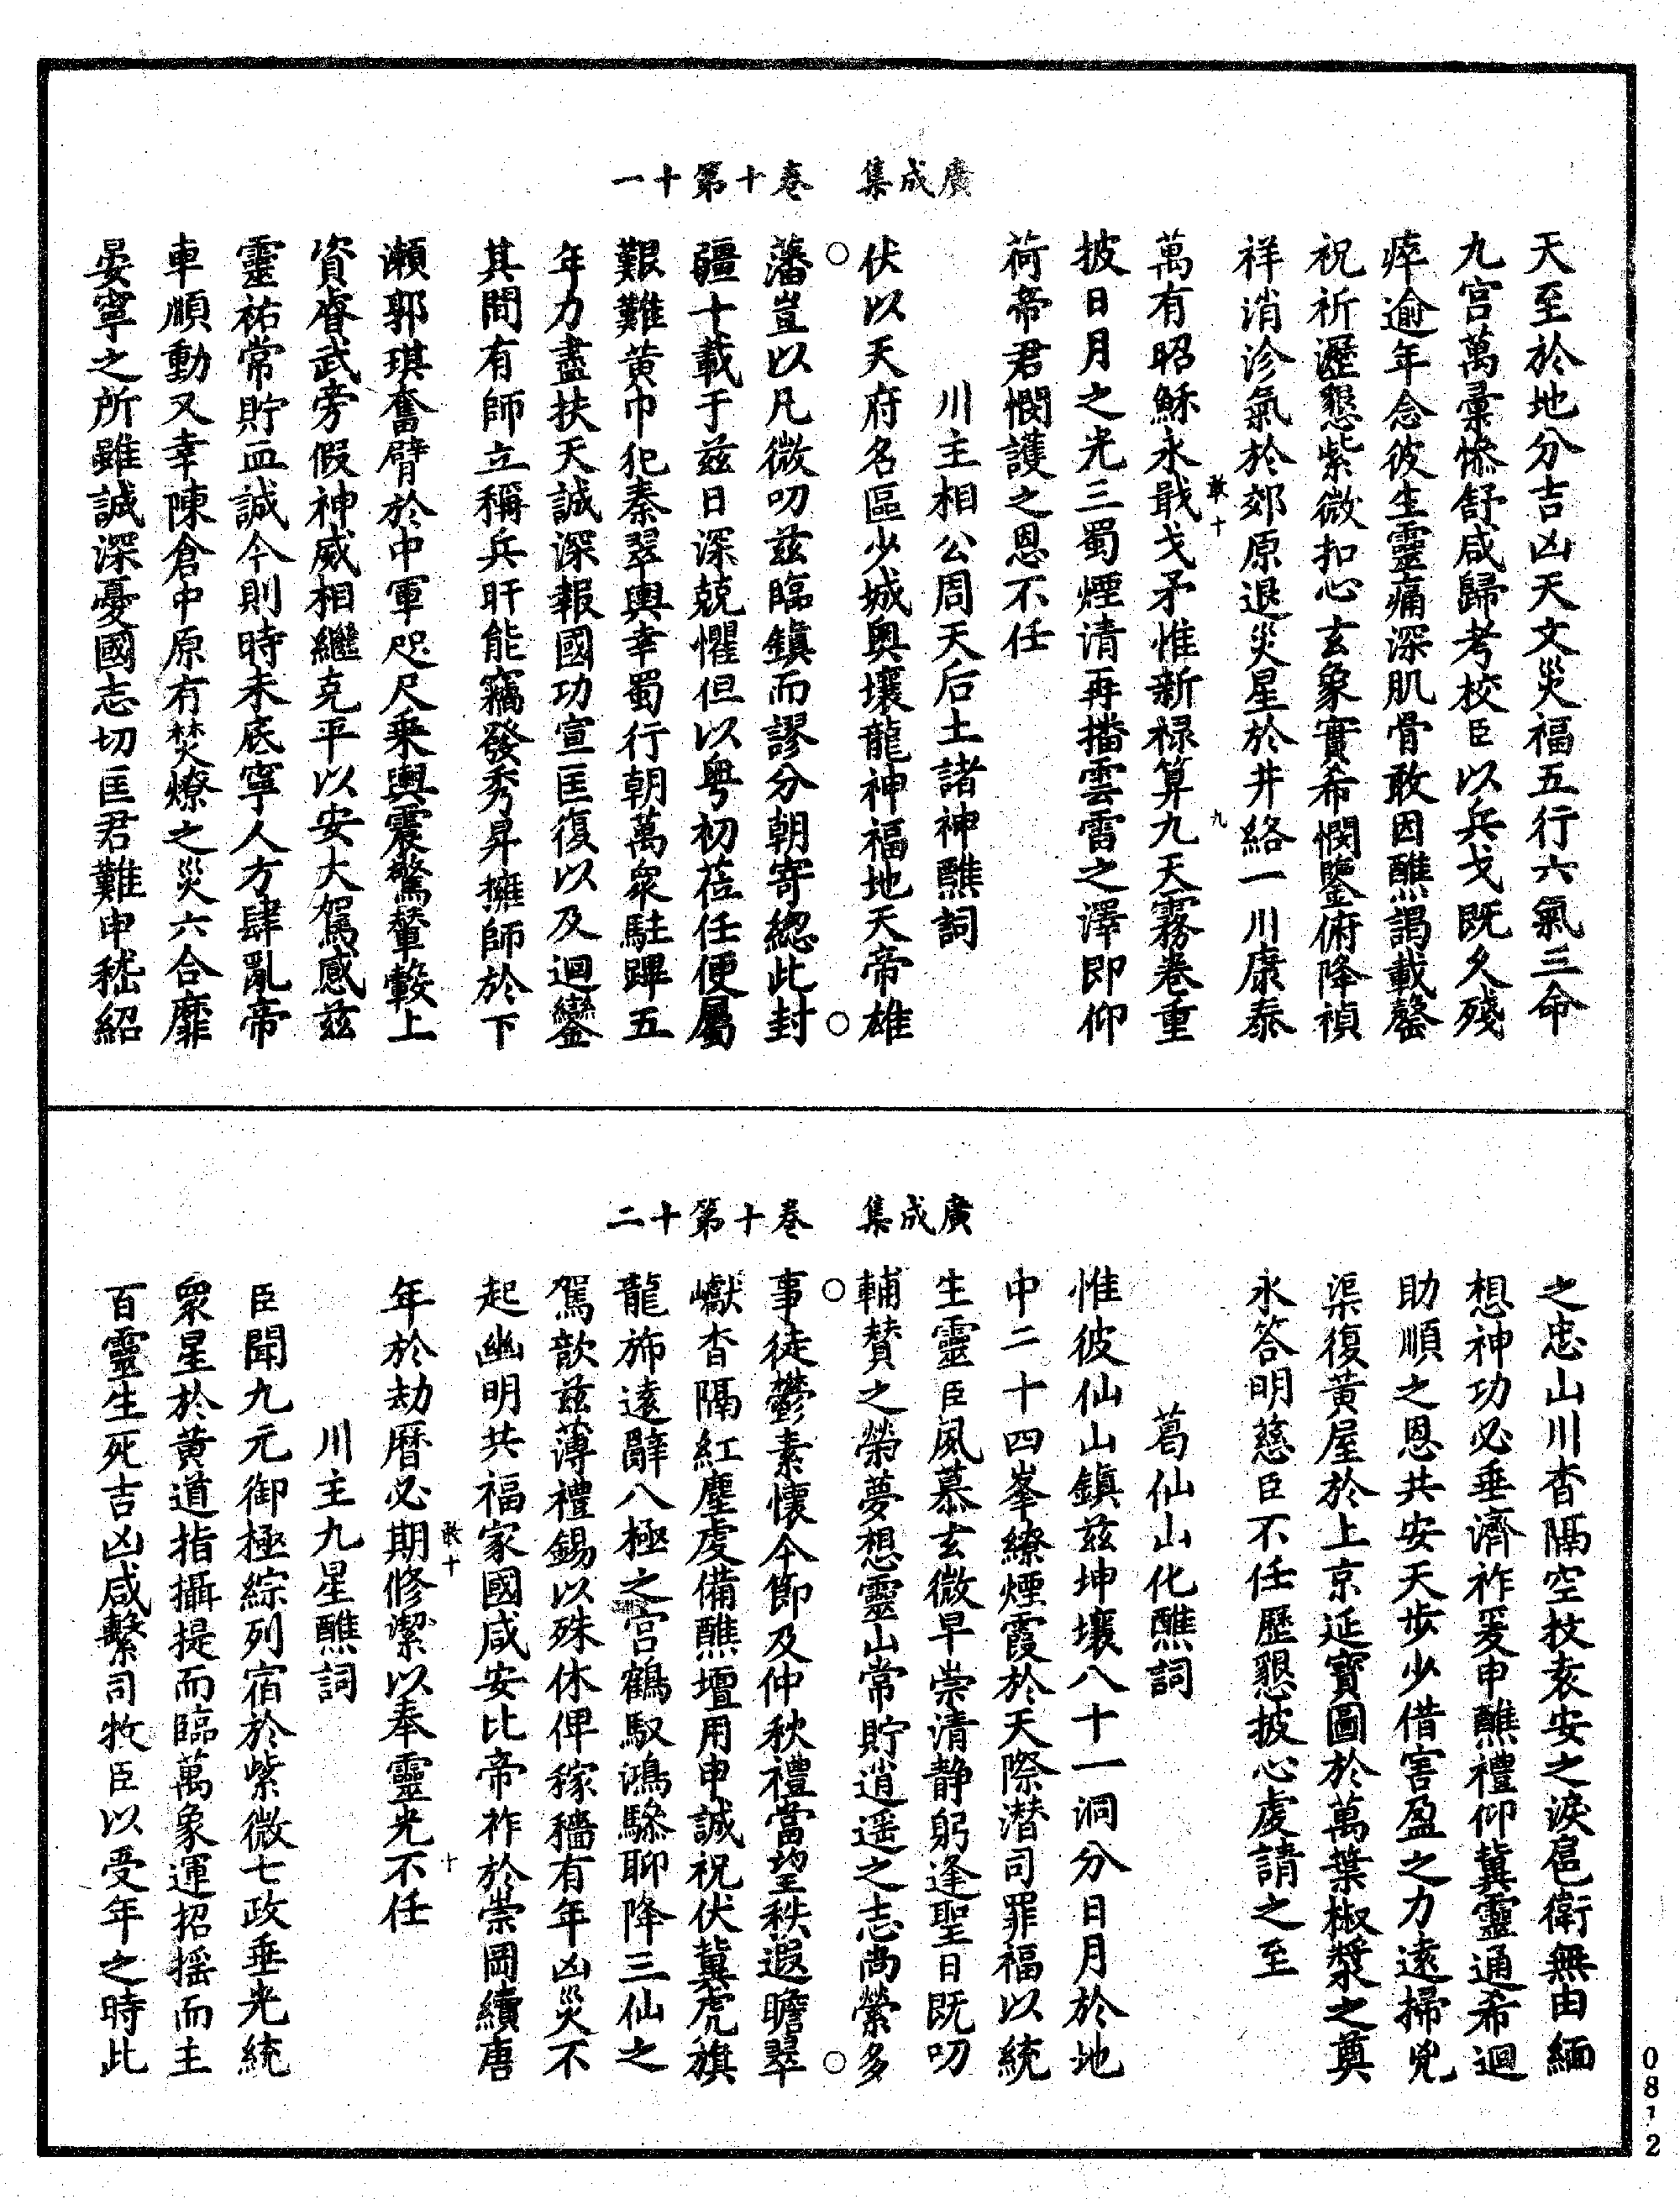 廣成集　卷十第十一
天至於地分吉凶天文災福五行六氣三命
九宫萬彙慘舒咸歸考校臣以兵戈既久殘
瘁逾年念彼生靈痛深肌骨敢因醮謁載罄
祝祈瀝懇紫微扣心玄象實希憫鑒俯降禎
祥消沴氣於郊原退災星於井絡一川康泰
敢十　九
萬有昭穌永戢戈矛惟新禄算九天霧卷重
披日月之光三蜀煙清再揩雲雷之澤即仰
荷帝君憫護之恩不任
川主相公周天后土諸神醮詞
伏以天府名區少城奥壤龍神福地天帝雄
藩豈以凡微叨兹臨鎮而謬分朝寄緫此封
疆十載于兹日深兢懼但以粤初莅任便屬
艱難黄巾犯秦翠輿幸蜀行朝萬衆駐蹕五
年力盡扶天誠深報國功宣匡復以及迴鑾
其間有師立稱兵旰能竊發秀昇擁師於下
瀬郭琪奮臂於中軍咫尺乗輿震驚輦轂上
資睿武旁假神威相繼克平以安大駕感兹
靈祐常貯血誠今則時未底寧人方肆亂帝
車順動又幸陳倉中原有焚燎之災六合靡
晏寧之所雖誠深憂國志切匡君難申嵇紹
廣成集　卷十第十二
之忠山川杳隔空抆袁安之淚扈衛無由緬
想神功必垂濟祚爰申醮禮仰冀靈通希迴
助順之恩共安天步少借害盈之力遠掃兇
渠復黄屋於上京延寶圖於萬葉椒漿之奠
永答明慈臣不任歷懇披心虔請之至
葛仙山化醮詞
惟彼仙山鎮兹坤壤八十一洞分日月於地
中二十四峯繚煙霞於天際潜司罪福以統
生靈臣夙慕玄微早崇清静躬逢聖日既叨
輔賛之榮夢想靈山常貯逍遥之志尚縈多
事徒鬱素懷今節及仲秋禮當望秩遐瞻翠
巘杳隔紅塵虔備醮壇用申誠祝伏冀虎旗
龍斾遠辭八極之宫鶴馭鴻驂聊降三仙之
駕歆兹薄禮錫以殊休俾稼穡有年凶災不
起幽明共福家國咸安比帝祚於崇岡續唐
敢十　十
年於劫曆必期修潔以奉靈光不任
川主九星醮詞
臣聞九元御極綜列宿於紫微七政垂光統
衆星於黄道指攝提而臨萬象運招摇而主
百靈生死吉凶咸繫司牧臣以受年之時此
0812